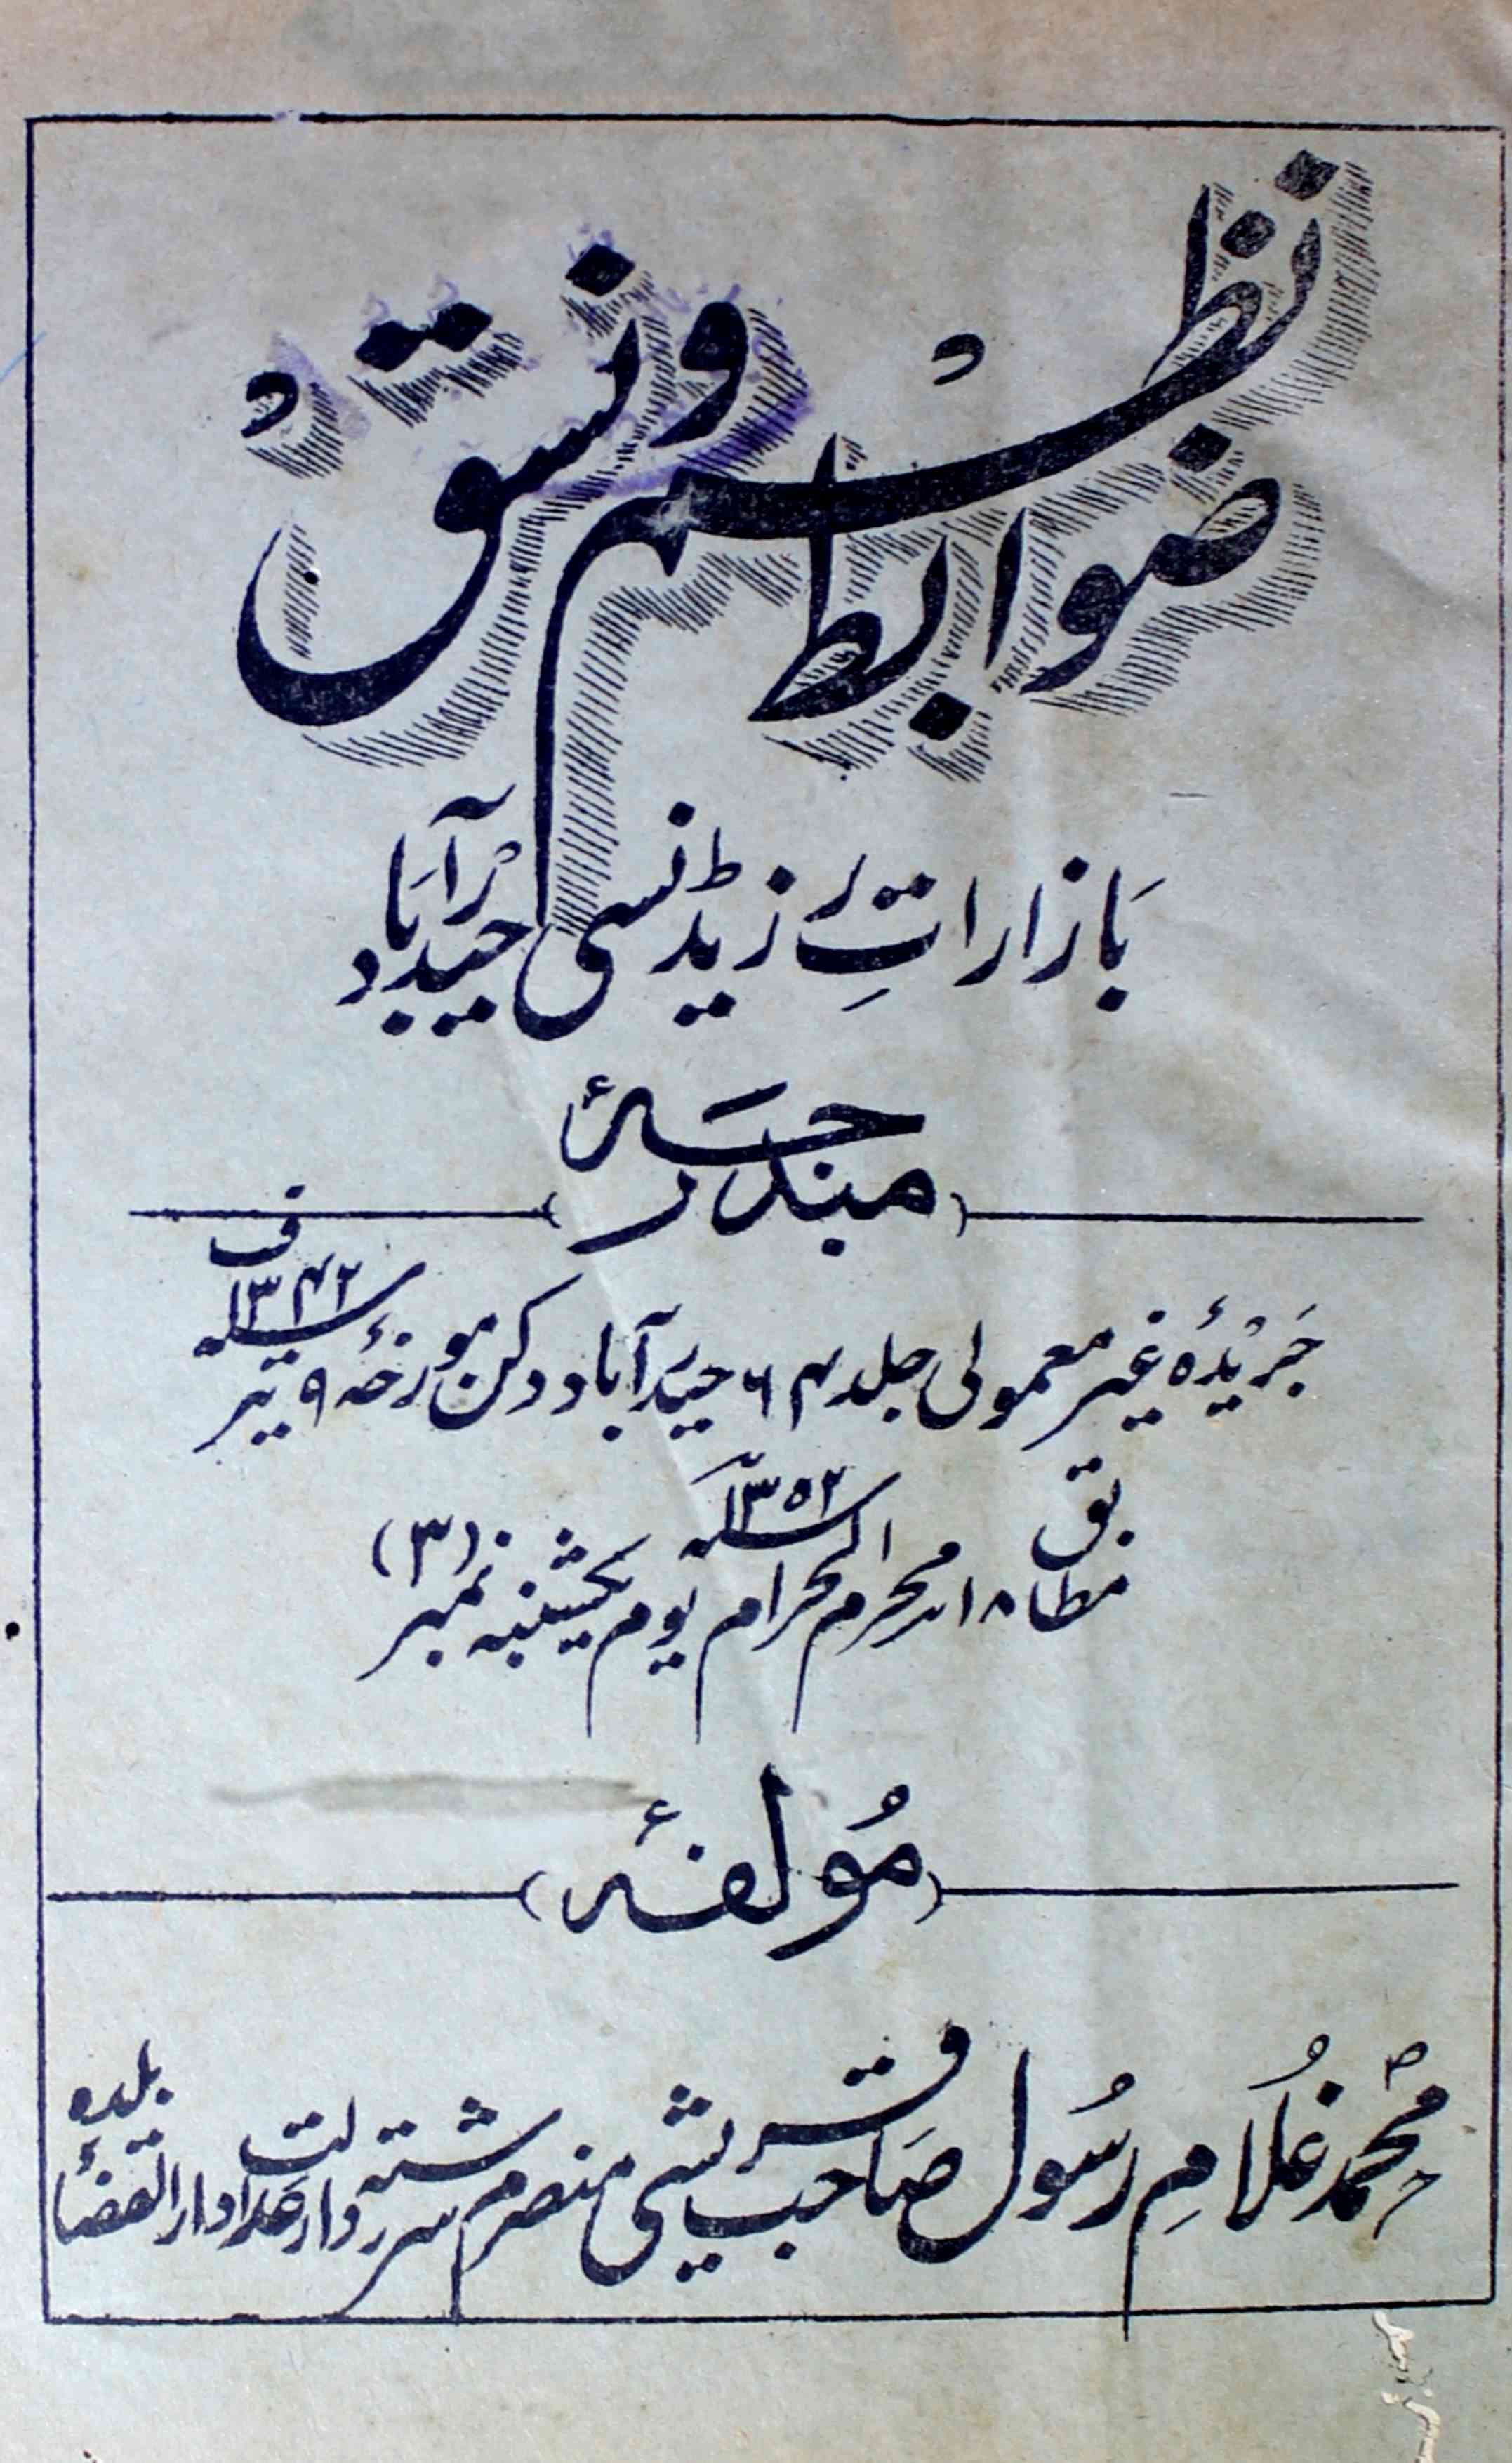 ضوابط نظم و نسق
بازاراتِ رزیڈنسی حیدرآباد
مندرجۂ
جریدۂ غیر معمولی جلد ۶۴ حیدرآباد دکن مورخۂ ۹ تیر سنہ ۱۳۴۲ ف
مطابق ۱۸ محرم الحرام سنہ ۱۳۵۲ یوم یکشنبہ نمبر (۳)
مؤلفۂ
محمد غلام رسول صاحب قریشی منصرم سررشتہ دار عدالت دارالقضائے بلدہ